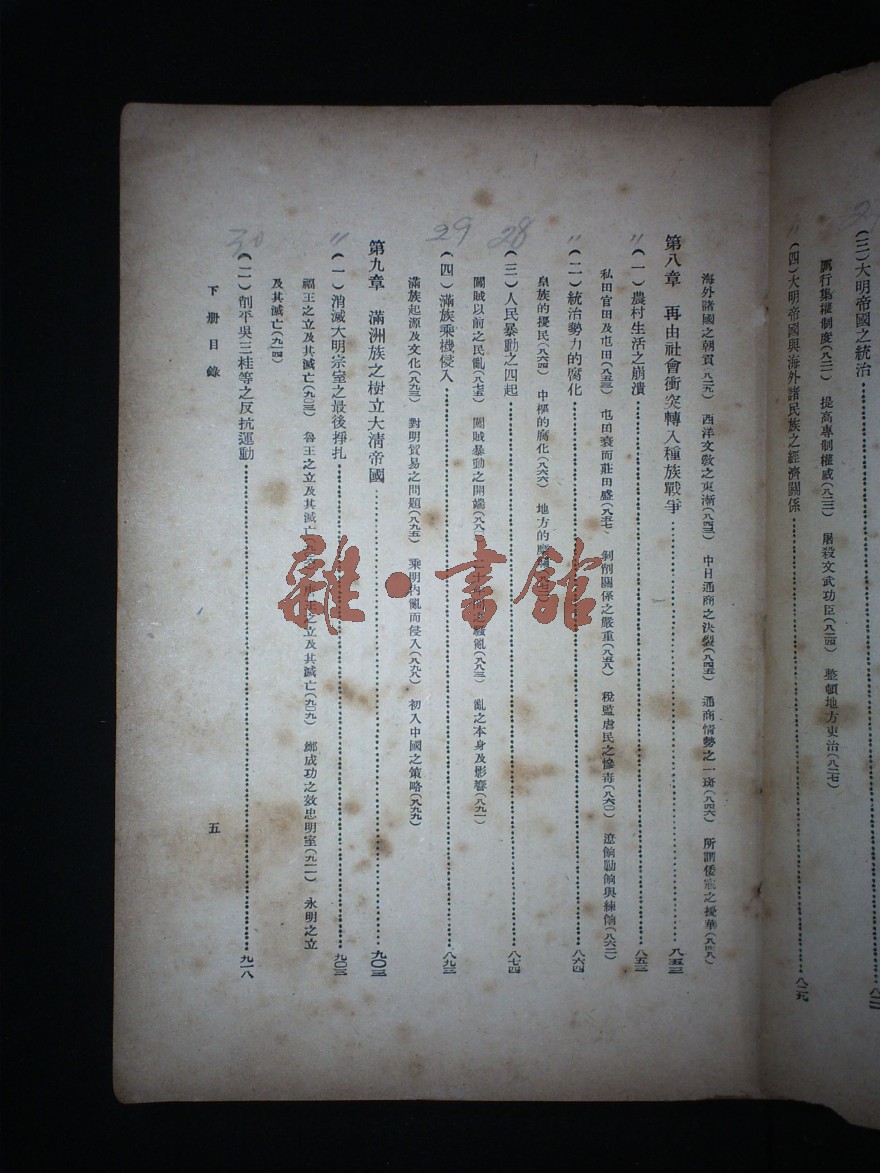 (三)大明帝國之統治
厲行集權制度(八二一) 提高專制權威(八二三) 屠殺文武功臣(八二四) 整頓地方吏治(八二七)
(四)大明帝國與海外諸民族之經濟關係 八二九
海外諸國之朝貢(八二九) 西洋文敎之東漸(八四三) 中日通商之決裂(八四五) 通商情勢之一斑(八四六) 所謂倭寇之擾華(八四八)
第八章 再由社會衝突轉入種族戰爭 八五三
(一)農村生活之崩潰 八五三
私田官田及屯田(八五三) 屯田衰而莊田盛(八五七) 剝削關係之嚴重(八五八) 稅監虐民之慘毒(八六〇) 遼餉勦餉與練餉(八六二)
(二)統治勢力的腐化 八六四
皇族的擾民(八六四) 中樞的腐化(八六六) 地方的
(三)人民暴動之四起 八七四
闖賊以前之民亂(八七五) 闖賊暴動之開端 亂(八八三) 亂之本身及影響(八九一)
(四)滿族乘機侵入 八九三
滿族起源及文化(八九三) 對明貿易之問題(八九五) 乘明內亂而侵入(八九九) 初入中國之策略(八九九)
第九章 滿洲族之樹立大清帝國 九〇三
(一)消滅大明宗室之最後掙扎 九〇三
福王之立及其滅亡(九〇三) 魯王之立及其滅亡 之立及其滅亡(九〇九) 鄭成功之效忠明室(九一一) 永明之立
及其滅亡(九一四)
(二)削平吳三桂等之反抗運動 九一八
下册目錄
五
28
29
30
雜·書館